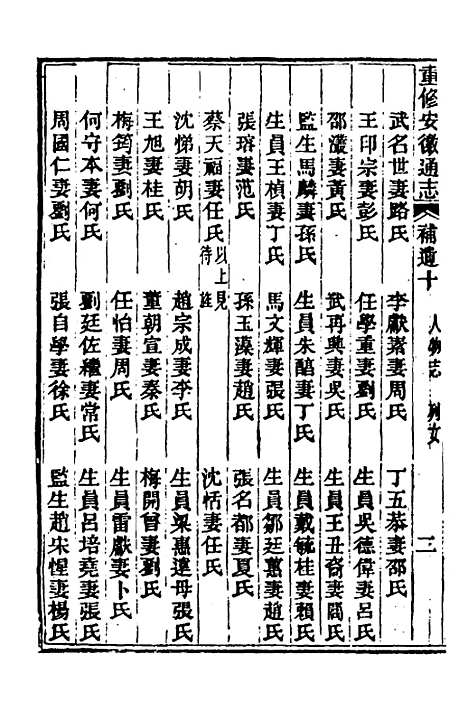 重修安徽通志 補遺十 人物志 列女 二
武名世妻路氏 李獻菴妻周氏 丁五恭妻邵氏
王印宗妻彭氏 任學重妻劉氏 生員吳德偉妻呂氏
邵瀻妻黃氏 武再興妻吳氏 生員王丑裔妻閻氏
監生馬麟妻孫氏 生員朱醕妻丁氏 生員戴毓桂妻賴氏
生員王楨妻丁氏 馬文輝妻張氏 生員鄒廷蕙妻趙氏
張瑃妻范氏 孫玉藻妻趙氏 張名都妻夏氏
蔡天福妻任氏以上見待旌 沈恬妻任氏
沈悌妻胡氏 趙宗成妻李氏 生員梁惠遠母張氏
王旭妻桂氏 董朝宣妻秦氏 梅開曾妻劉氏
梅筠妻劉氏 任怡妻周氏 生員雷獻妻卜氏
何守本妻何氏 劉廷佐繼妻常氏 生員呂培堯妻張氏
周國仁妻劉氏 張自學妻徐氏 監生趙宋惺妻楊氏